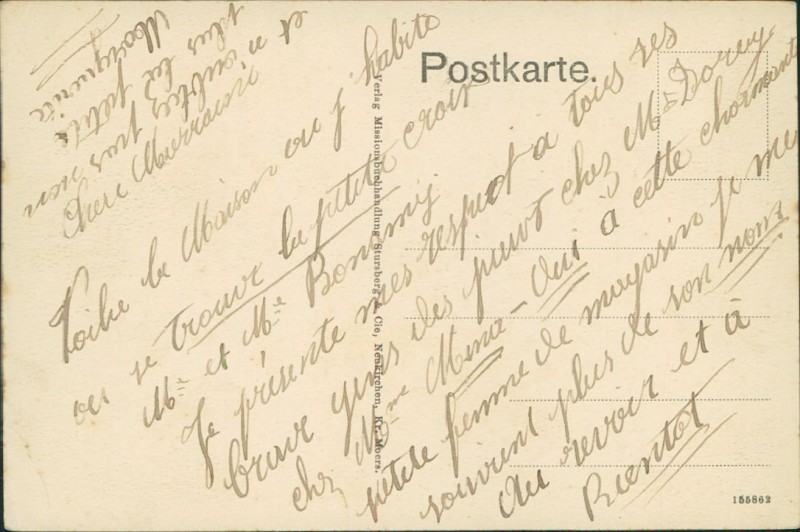 Postkarte.
Verlag Missionsbuchhandlung Stursberg & Cie, Neukirchen, Kr. Moers.
Chere Marraine
Voila la Maison ou j'habite
ou se trouve la petite croix
Mr et Me Bonamy
Je présente mes respect a tous ses
brave gens des jieurs chez M Dorey
chez Mme Mina - Oui à cette charmante
petite femme de magasin je me
souvient plus de son nom
Au revoir et à
Bientot
et n'oubliez pas non
plus la petite
Marguerite
155862